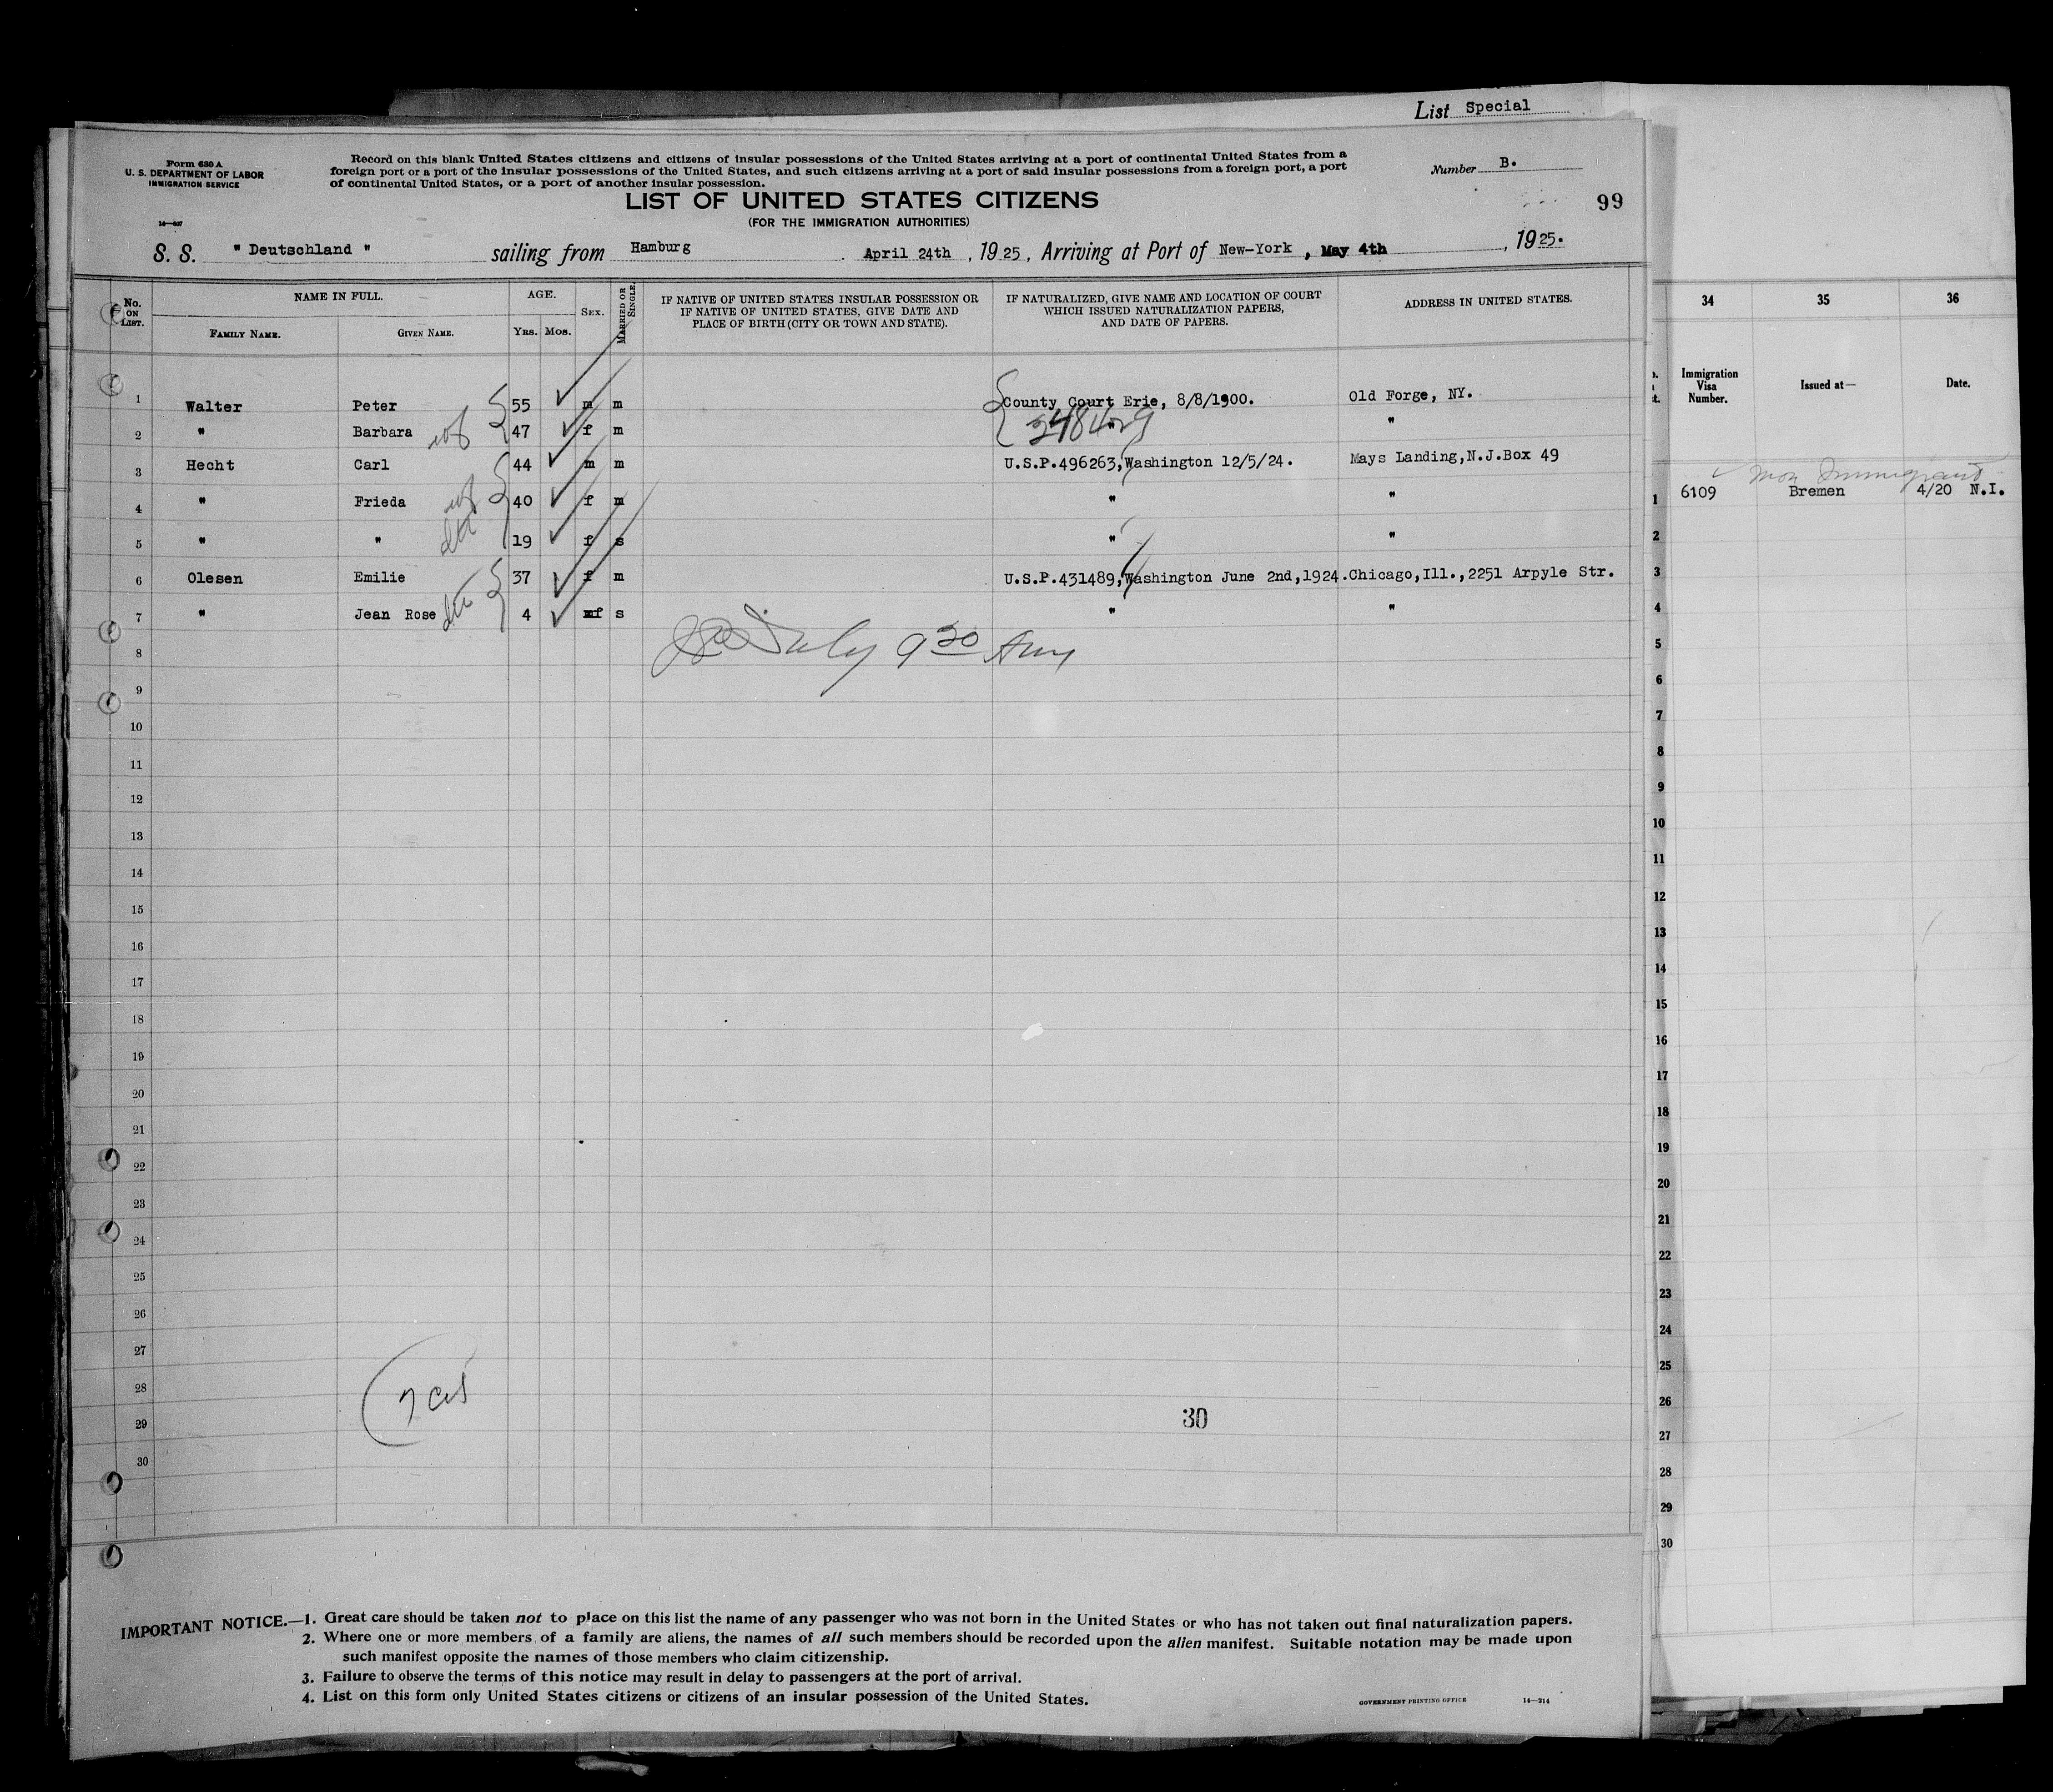 List Special
Form 630 A
U. S. DEPARTMENT OF LABOR
IMMIGRATION SERVICE
Record on this blank United States citizens and citizens of insular possessions of the United States arriving at a port of continental United States from a
foreign port or a port of the insular possessions of the United States, and such citizens arriving at a port of said insular possessions from a foreign port, a port
of continental United States, or a port of another insular possession.
Number B.
LIST OF UNITED STATES CITIZENS
(FOR THE IMMIGRATION AUTHORITIES)
99
S. S. " Deutschland " sailing from Hamburg April 24th , 1925, Arriving at Port of New-York , May 4th , 1925.
No. ON LIST.
NAME IN FULL.
FAMILY NAME.
GIVEN NAME.
AGE.
YRS. MOS.
SEX.
MARRIED OR SINGLE.
IF NATIVE OF UNITED STATES INSULAR POSSESSION OR
IF NATIVE OF UNITED STATES, GIVE DATE AND
PLACE OF BIRTH (CITY OR TOWN AND STATE).
IF NATURALIZED, GIVE NAME AND LOCATION OF COURT
WHICH ISSUED NATURALIZATION PAPERS,
AND DATE OF PAPERS.
ADDRESS IN UNITED STATES.
1 Walter Peter 55 m m County Court Erie, 8/8/1900. Old Forge, NY.
2 " Barbara wf 47 f m " "
3 Hecht Carl 44 m m U.S.P.496263,Washington 12/5/24. Mays Landing,N.J.Box 49
4 " Frieda wf 40 f m " "
5 " " dtr 19 f s " "
6 Olesen Emilie 37 f m U.S.P.431489,Washington June 2nd,1924. Chicago,Ill.,2251 Arpyle Str.
7 " Jean Rose dtr 4 f s " "
9 30 Am
8
9
10
11
12
13
14
15
16
17
18
19
20
21
22
23
24
25
26
27
28
29
30
30
IMPORTANT NOTICE.—1. Great care should be taken not to place on this list the name of any passenger who was not born in the United States or who has not taken out final naturalization papers.
2. Where one or more members of a family are aliens, the names of all such members should be recorded upon the alien manifest. Suitable notation may be made upon
such manifest opposite the names of those members who claim citizenship.
3. Failure to observe the terms of this notice may result in delay to passengers at the port of arrival.
4. List on this form only United States citizens or citizens of an insular possession of the United States.
GOVERNMENT PRINTING OFFICE 14—214
34 35 36
Immigration
Visa
Number.
Issued at—
Date.
Non Immigrant
1 6109 Bremen 4/20 N.I.
2
3
4
5
6
7
8
9
10
11
12
13
14
15
16
17
18
19
20
21
22
23
24
25
26
27
28
29
30